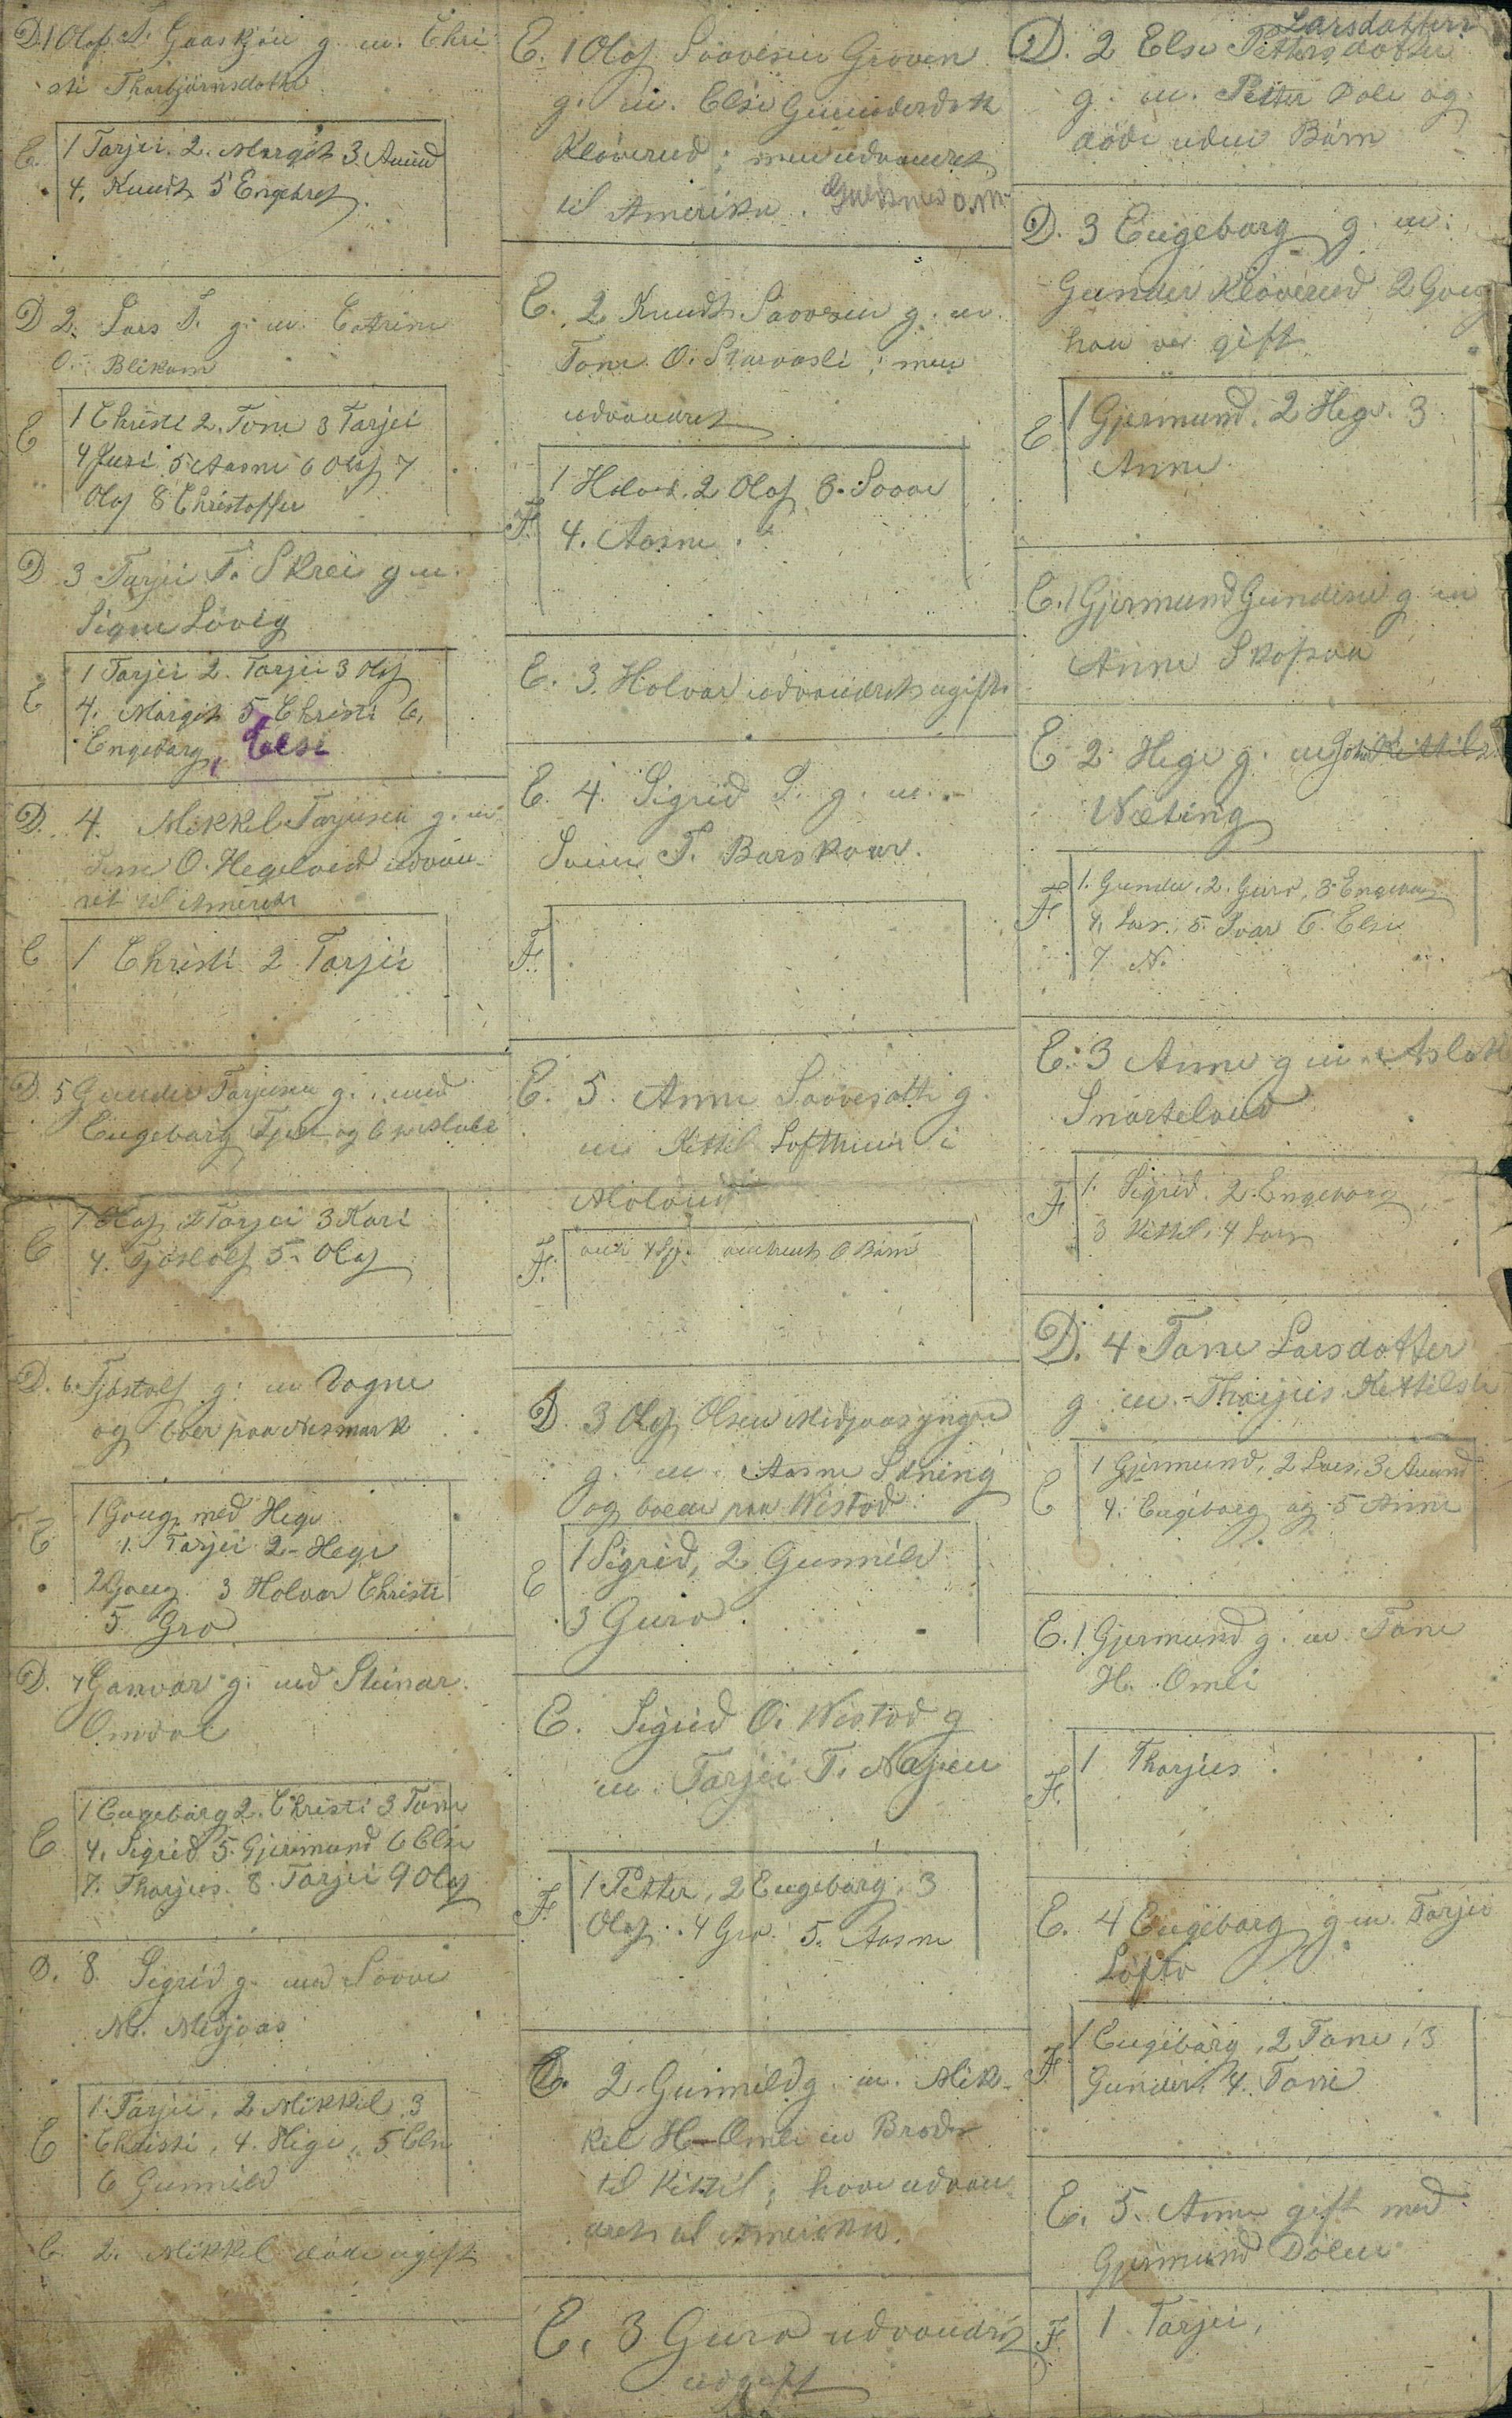 D. 1 Olaf T. Gaaskjön g. m. Chri
sti Thorbjörnsdotter
E. 1 Tarjei. 2. Margit 3 Anund
4. Knudt 5 Engebret.
D 2. Lars T. g. m. Catrine
O. Blikom
E 1 Christi 2. Tone 3 Tarjei
4 Juri 5 Aasne 6 Olaf 7
Olaf 8 Christoffer
D 3 Tarjei T. Skrei g m.
Signe Lövig
E 1 Tarjei 2. Tarjei 3 Olaf
4. Margit 5 Christi 6,
Engebarg, Else
D. 4. Mikkel Tarjusen g. m
O. Hegeland udvan-
ret til Amerika
E 1 Christi 2 Tarjei
D. 5 Gunder Tarjusen g. med
Engebarg og
E 1 Olaf 2 Tarjei 3 Kari
4. Fjöstolf 5. Olaf
D. 6. Fjöstolf g. m Dagne
og boer paa Nesmark
E 1 Goug. med Hege
1. Tarjei 2 Hege
2 Goug. 3 Holvar Christi
5 Gro
D. 7 Gonvor g. med Steinar
Omdal
E 1 Engebarg 2. Christi 3 Tone
4. Sigrid 5. Gjermund 6 Else
7. Tharjus. 8. Tarjei 9 Olaf
D. 8. Sigrid g. med Saave
M. Midjaas
E 1 Tarjei, 2 Mikkel, 3
Christi, 4. Hege, 5 Else
6 Gunnild
E. 2. Mikkel döde ugift
E. 1 Olaf Saavesen Groven
g. m. Else Gundersdatt
Klöverud; men udvandret
til Amerika.
E. 2 Knudt Saavesen g. m.
Tone O. Starvasli; men
udvandret
F. 1 Holvor. 2 Olaf 3. Saave
4. Aasne.
E. 3. Holvar udvandret ugift
E. 4. Sigrid S. g. m.
Svein T. Barskaar.
F.
E. 5. Anne Saavesdatt g.
m Kittel Lofthuus i
Moland
F. 6 Barn
D. 3 Olaf Olsen Midjaas yngre
g. m. Aasne Skning
og boede paa Wistad
E 1 Sigrid, 2 Gunnild
3 Guro.
E. Sigrid O. Wistad g
m. Tarjei T. Næsen
F. 1 Petter, 2 Engebarg, 3
Olaf. 4 Gro. 5. Aasne
E. 2. Gunnild g. m. Mik-
kel H. Omli en Broder
til Kittil; have udvan
dret til Amerika.
E. 3 Guro udvandret
ugift
D. 2 Else Petersdotter Larsdotter
g. m. Petter Dale og
döde uden Börn
D. 3 Engebarg g. m.
Gunder Klöverud 2 Goug
han var gift
E 1 Gjermund. 2 Hege. 3
Anne
E. 1 Gjermund Gundersen g m
Anne Skofsaa
E 2 Hege g. m John Kittils
Næting
F. 1. Gunder, 2. Guro, 3 Engebarg
4. Lars, 5. Ivar 6. Else
7 N.
E. 3 Anne g m. Aslak
Snarteland
F 1. Sigrid. 2. Engebarg
3 Kittel, 4 Lars
D. 4 Tone Larsdotter
g m. Tharjus Kittilsen
E 1 Gjermund, 2 Lars, 3 Anund
4. Engebarg og 5 Anne
E. 1 Gjermund g. m. Tone
H. Omli
F. 1 Tharjus.
E. 4 Engebarg g m. Tarjei
Lofto
F. 1 Engebarg, 2 Tone, 3
Gunder, 4. Tone
E. 5. Anne gift med
Gjermund Dölen
F. 1 Tarjei,